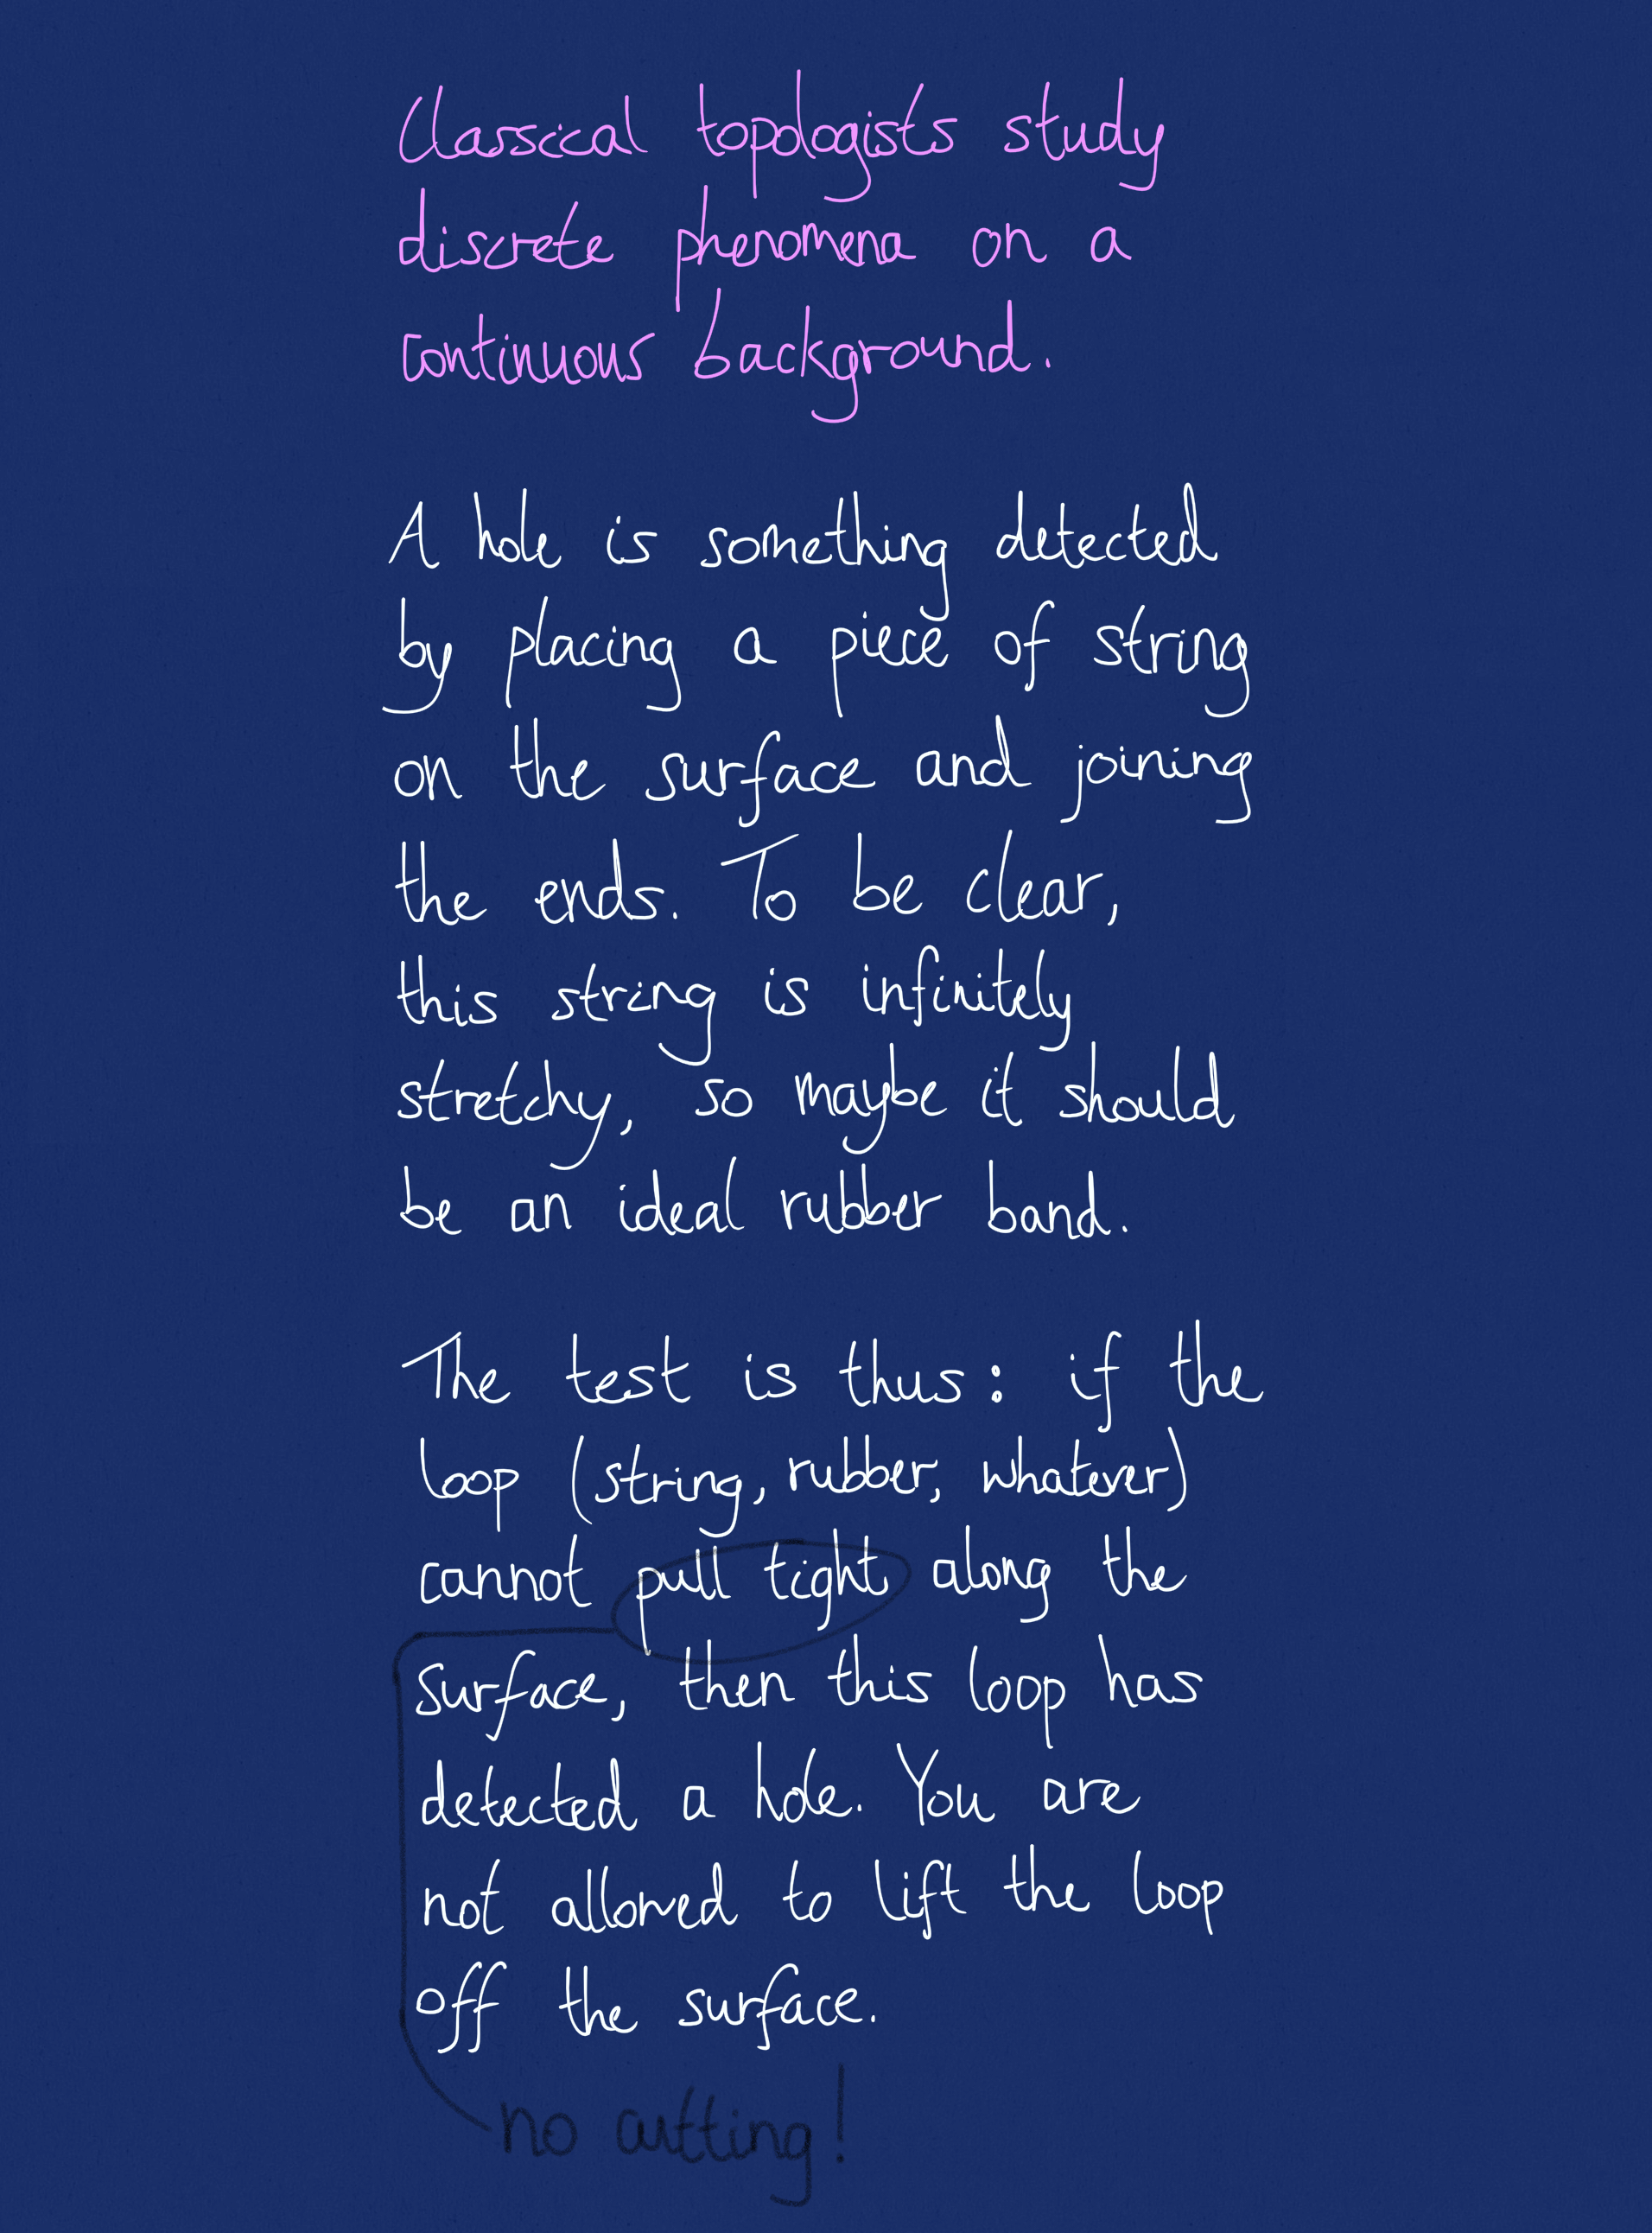 Classical topologists study
discrete phenomena on a
continuous background.
A hole is something detected
by placing a piece of string
on the surface and joining
the ends. To be clear,
this string is infinitely
stretchy, so maybe it should
be an ideal rubber band.
The test is thus: if the
loop (string, rubber, whatever)
cannot pull tight along the
surface, then this loop has
detected a hole. You are
not allowed to lift the loop
off the surface.
no cutting!